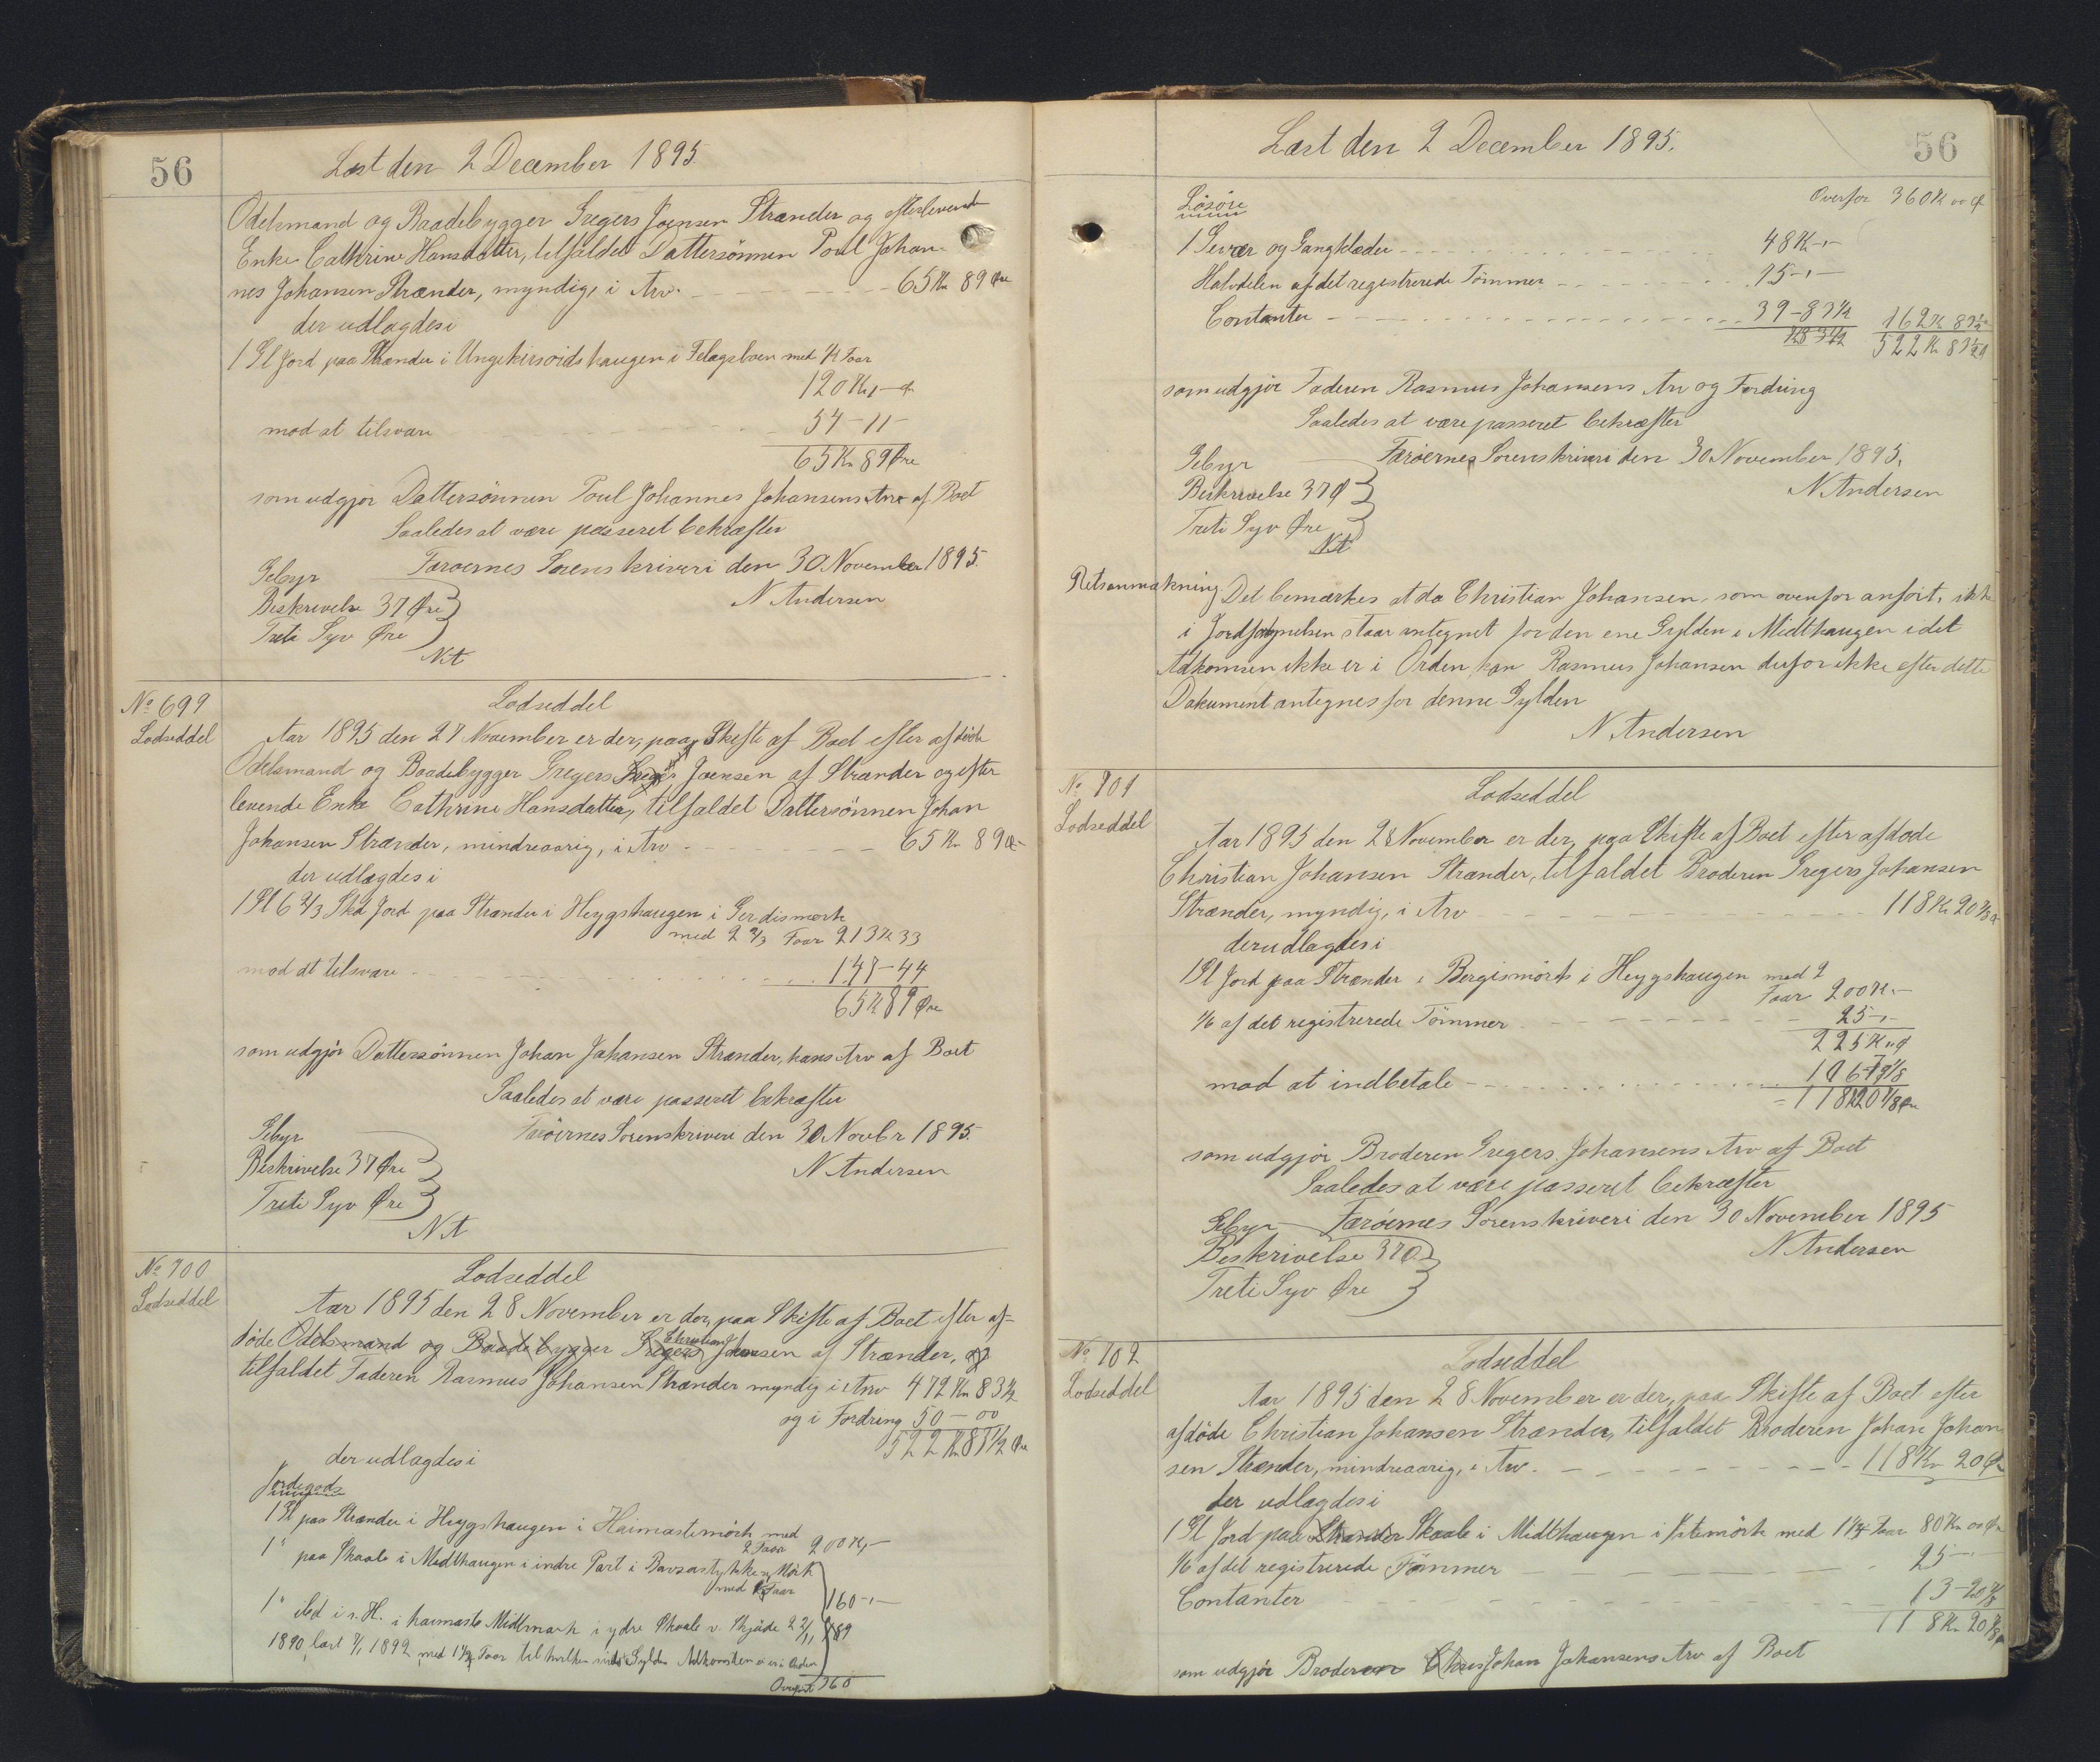 56
Læst den 2 December 1895
Odelsmand og Baadebygger Gregers Joensen Strænder og efterlevende
Enke Cathrine Hansdatter, tilfaldet Dattersönnen Poul Johan-
nes Johansen Strænder, myndig, i Arv. 65 Kr 89 Øre
der udlagdes i
1 Gl Jord paa Strænder i Ungekirsoidshaugen i Felagsboen med ½ Faar
120 Kr, - Ø
mod at tilsvare 54 - 11 -
65 Kr 89 Øre
som udgjør Dattersönnen Poul Johannes Johansens Arv af Boet
Saaledes at være passeret bekræfter
Færøernes Sorenskriveri den 30 November 1895.
Gebyr
N Andersen
Beskrivelse 37 Øre
Treti Syv Øre
NA
No 699
Lodseddel
Lodseddel
Aar 1895 den 27 November er der, paa Skifte af Boet efter afdöde
Odelsmand og Baadebygger Gregers Joensen af Strænder og efter
levende Enke Cathrine Hansdatter, tilfaldet Dattersönnen Johan
Johansen Strænder, mindreaarig, i Arv 65 Kr 89 Ø
der udlagdes i
1 Gl 6 2/3 Skd Jord paa Strænder i Heygshaugen i Gerdismork
med 2 2/3 Faar 213 Kr 33
mod at tilsvare 147 - 44
65 Kr 89 Øre
som udgjör Dattersönnen Johan Johansen Strænder, hans Arv af Boet
Saaledes at være passeret bekræfter
Færöernes Sorenskriveri den 30 Novbr 1895.
Gebyr
N Andersen
Beskrivelse 37 Øre
Treti Syv Øre
NA
No 700
Lodseddel
Lodseddel
Aar 1895 den 28 November er der, paa Skifte af Boet efter af-
döde Odelsmand og Baadebygger Gregers Christian Johansen af Strænder, og
tilfaldet Faderen Rasmus Johansen Strænder myndig i Arv 472 Kr 83½
og i Fordring 50 - 00
522 Kr 83½ Øre
der udlagdes i
Jordegods
1 Gl paa Strænder i Heygshaugen i Haimastemörk med
2 Faar 200 Kr, -
1 " paa Skaale i Midthaugen i indre Part i Mörk
med Faar
160 - , -
1 " ibd i s. H. i haimaste Midtmark i ydre Skaale v. Skjöde 22/11 1889
1890, læst 7/1 1892, med 1¼ Faar til hvilken sidste Gylden Adkomsten ei er i Orden
Overføres 360
56
Læst den 2 December 1895.
Overfor 360 Kr 00 Ø
Lösöre
1 Gevær og Gangklæder 48 Kr - , -
Halvdelen af det registrerede Tömmer 75 - , -
Contanter 39 - 83½ 162 Kr 83½
522 Kr 83½ Ø
som udgjör Faderen Rasmus Johansens Arv og Fordring
Saaledes at være passeret bekræfter
Færöernes Sorenskriveri den 30 November 1895.
Gebyr
N Andersen
Beskrivelse 37 Ø
Treti Syv Øre
NA
Retsanmærkning. Det bemærkes at da Christian Johansen, som ovenfor anfört, ikke
i Jordfortegnelsen staar antegnet for den ene Gylden i Midthaugen idet
Adkomsen ikke er i Orden, kan Rasmus Johansen derfor ikke efter dette
Dokument antegnes for denne Gylden
N Andersen
No 701
Lodseddel
Lodseddel
Aar 1895 den 28 November er der, paa Skifte af Boet efter afdöde
Christian Johansen Strænder, tilfaldet Broderen Gregers Johansen
Strænder, myndig, i Arv 118 Kr 20 7/8 Ø
der udlagdes i
1 Gl Jord paa Strænder i Bergismörk i Heygshaugen med 2
Faar 200 Kr. -
1/6 af det registrerede Tömmer 25 - , -
225 Kr " Ø
mod at indbetale 106 - 79 1/8
118 Kr 20 7/8 Øre
som udgjör Broderen Gregers Johansens Arv af Boet
Saaledes at være passeret bekræfter
Færöernes Sorenskriveri den 30 November 1895
Gebyr
N Andersen
Beskrivelse 37 Ø.
Treti Syv Øre
No 702
Lodseddel
Lodseddel
Aar 1895 den 28 November er der, paa Skifte af Boet efter
afdöde Christian Johansen Strænder, tilfaldet Broderen Johan Johan
sen Strænder, mindreaarig, i Arv. 118 Kr 20 Ø
der udlagdes i
1 Gl Jord paa Strænder Skaale i Midthaugen i Istemörk med 1¼ Faar 80 Kr 00 Ø
1/6 af det registrerede Tömmer 25 - , -
Contanter 13 - 20 7/8
118 Kr 20 7/8 Ø
som udgjör Broderen Chris Johan Johansens Arv af Boet